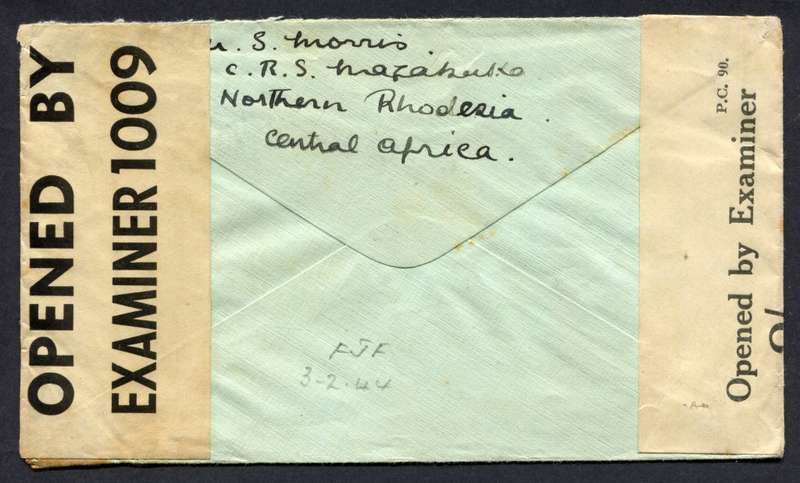 OPENED BY
EXAMINER 1009
S. Morris.
c. R. S. Mazabuka
Northern Rhodesia.
Central Africa.
FJF
3-2-44
P.C. 90.
Opened by Examiner